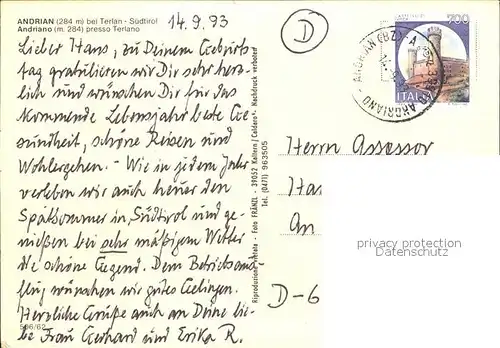 ANDRIAN (284 m) bei Terlan - Südtirol
Andriano (m. 284) presso Terlano
14.9.93
Lieber Hans, zu Deinem Geburts-
tag gratulieren wir Dir sehr herz-
lich und wünschen Dir für das
kommende Lebensjahr beste Ge-
sundheit, schöne Reisen und
Wohlergehen. - Wie in jedem Jahr
verleben wir auch heuer den
Spätsommer in Südtirol und ge-
nießen bei sehr mäßigem Wetter
die schöne Gegend. Dem Betriebsaus-
flug wünschen wir gutes Gelingen.
Herzliche Grüße auch an Deine lie-
be Frau Gerhard und Erika R.
596/62
Riproduzione vietata - Foto FRÄNZL - 39052 Kaltern / Caldaro - Nachdruck verboten
Tel. (0471) 963505
D
700
ITALIA
ANDRIANO
Herrn Assessor
Ha
An
D-6
privacy protection
watermark